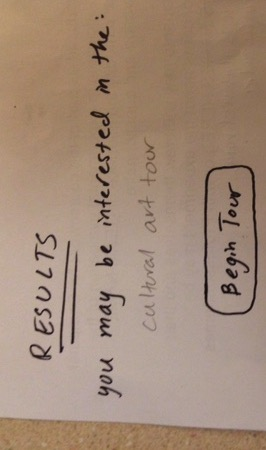 RESULTS
you may be interested in the:
cultural art tour
Begin Tour